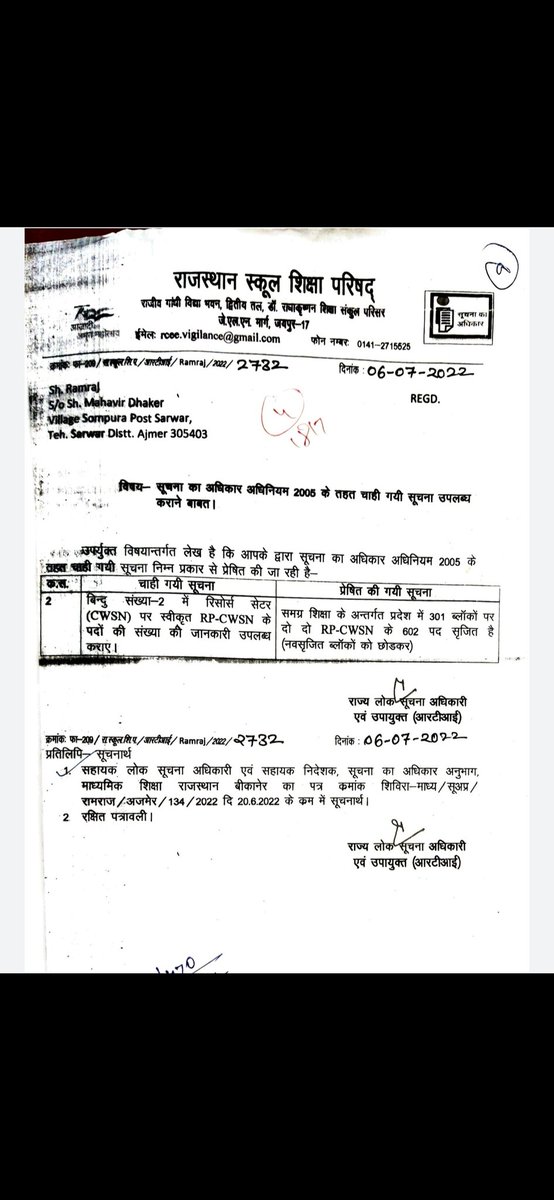 राजस्थान स्कूल शिक्षा परिषद्
राजीव गांधी विद्या भवन, द्वितीय तल, डॉ. राधाकृष्णन शिक्षा संकुल परिसर
जे.एल.एन. मार्ग, जयपुर–17
ईमेलः rcee.vigilance@gmail.com फोन नम्बरः 0141-2715525
सूचना का
अधिकार
क्रमांकः फा-209/रास्कूलशिप/आरटीआई/Ramraj/2022/ 2732 दिनांकः 06-07-2022
Sh. Ramraj REGD.
S/o Sh. Mahavir Dhaker
Village Sompura Post Sarwar,
Teh. Sarwar Distt. Ajmer 305403
विषय– सूचना का अधिकार अधिनियम 2005 के तहत चाही गयी सूचना उपलब्ध
कराने बाबत।
उपर्युक्त विषयान्तर्गत लेख है कि आपके द्वारा सूचना का अधिकार अधिनियम 2005 के
तहत चाही गयी सूचना निम्न प्रकार से प्रेषित की जा रही है–
क.स. चाही गयी सूचना प्रेषित की गयी सूचना
2 बिन्दु संख्या–2 में रिसोर्स सेटर
(CWSN) पर स्वीकृत RP-CWSN के
पदों की संख्या की जानकारी उपलब्ध
कराए।
समग्र शिक्षा के अन्तर्गत प्रदेश में 301 ब्लॉकों पर
दो दो RP-CWSN के 602 पद सृजित है
(नवसृजित ब्लॉकों को छोडकर)
राज्य लोक सूचना अधिकारी
एवं उपायुक्त (आरटीआई)
क्रमांकः फा-209/रास्कूलशिप/आरटीआई/Ramraj/2022/ 2732 दिनांकः 06-07-2022
प्रतिलिपि– सूचनार्थ
1. सहायक लोक सूचना अधिकारी एवं सहायक निदेशक, सूचना का अधिकार अनुभाग,
माध्यमिक शिक्षा राजस्थान बीकानेर का पत्र कमांक शिविरा–माध्य/सूअप्र/
रामराज/अजमेर/134/2022 दि 20.6.2022 के कम में सूचनार्थ।
2 रक्षित पत्रावली।
राज्य लोक सूचना अधिकारी
एवं उपायुक्त (आरटीआई)